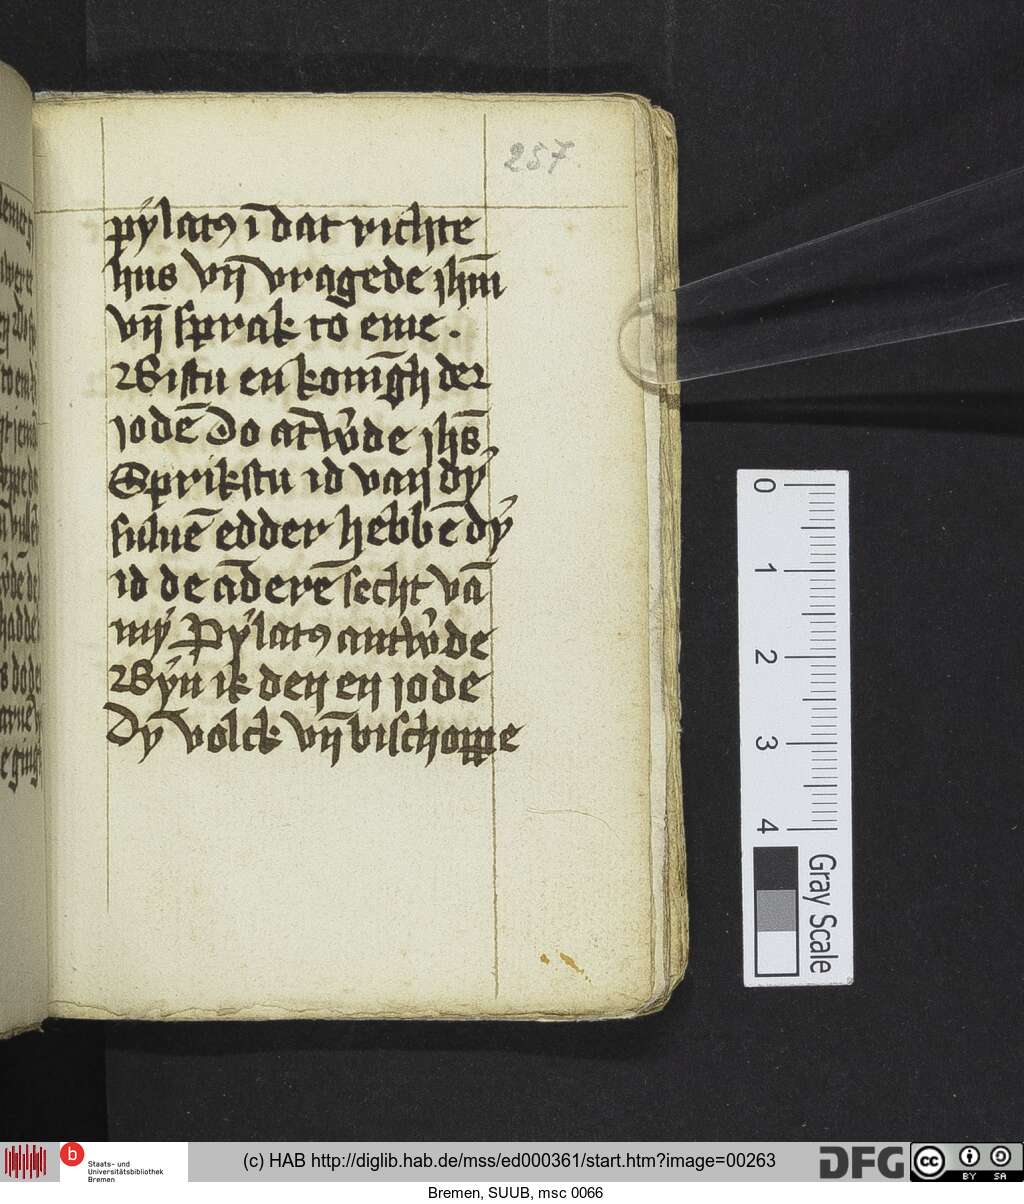 257
pÿlatꝰ ī dat richte
hus vn̄ vragede ihm̄
vn̄ sprak to eme .
Bistu en konīgh der
iodē Do ātwͦde ihs̄
Sprikstu id van dy
suluē edder hebbē dy
id de āderē secht vā
mÿ Pÿlatꝰ antwͦde
Bÿn ik den en iode
Dÿ volck vn̄ bischoppe
0
1
2
3
4
Gray Scale
b
Staats- und
Universitätsbibliothek
Bremen
(c) HAB http://diglib.hab.de/mss/ed000361/start.htm?image=00263
DFG
cc
BY SA
Bremen, SUUB, msc 0066